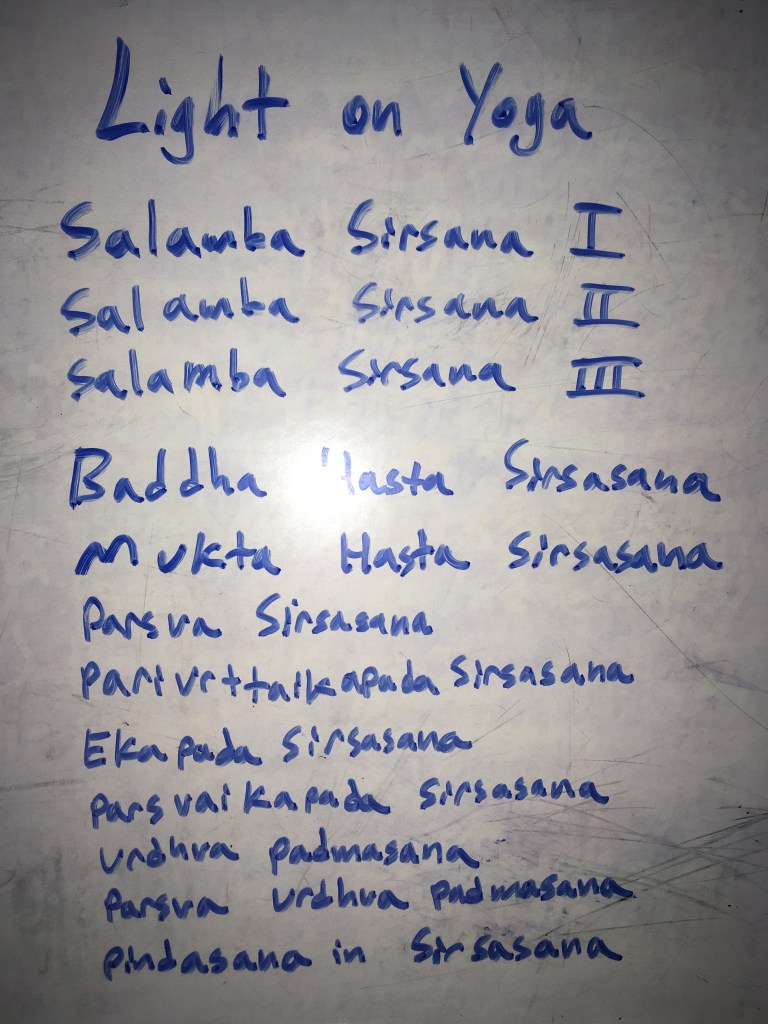 Light on Yoga
Salamba Sirsana I
Salamba Sirsana II
Salamba Sirsana III
Baddha Hasta Sirsasana
Mukta Hasta Sirsasana
Parsva Sirsasana
Parivrttaikapada Sirsasana
Eka pada Sirsasana
Parsvaikapada Sirsasana
urdhva padmasana
Parsva urdhva padmasana
pindasana in Sirsasana